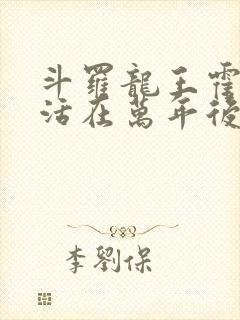 斗羅龍王霍
活在萬年後
李劉保